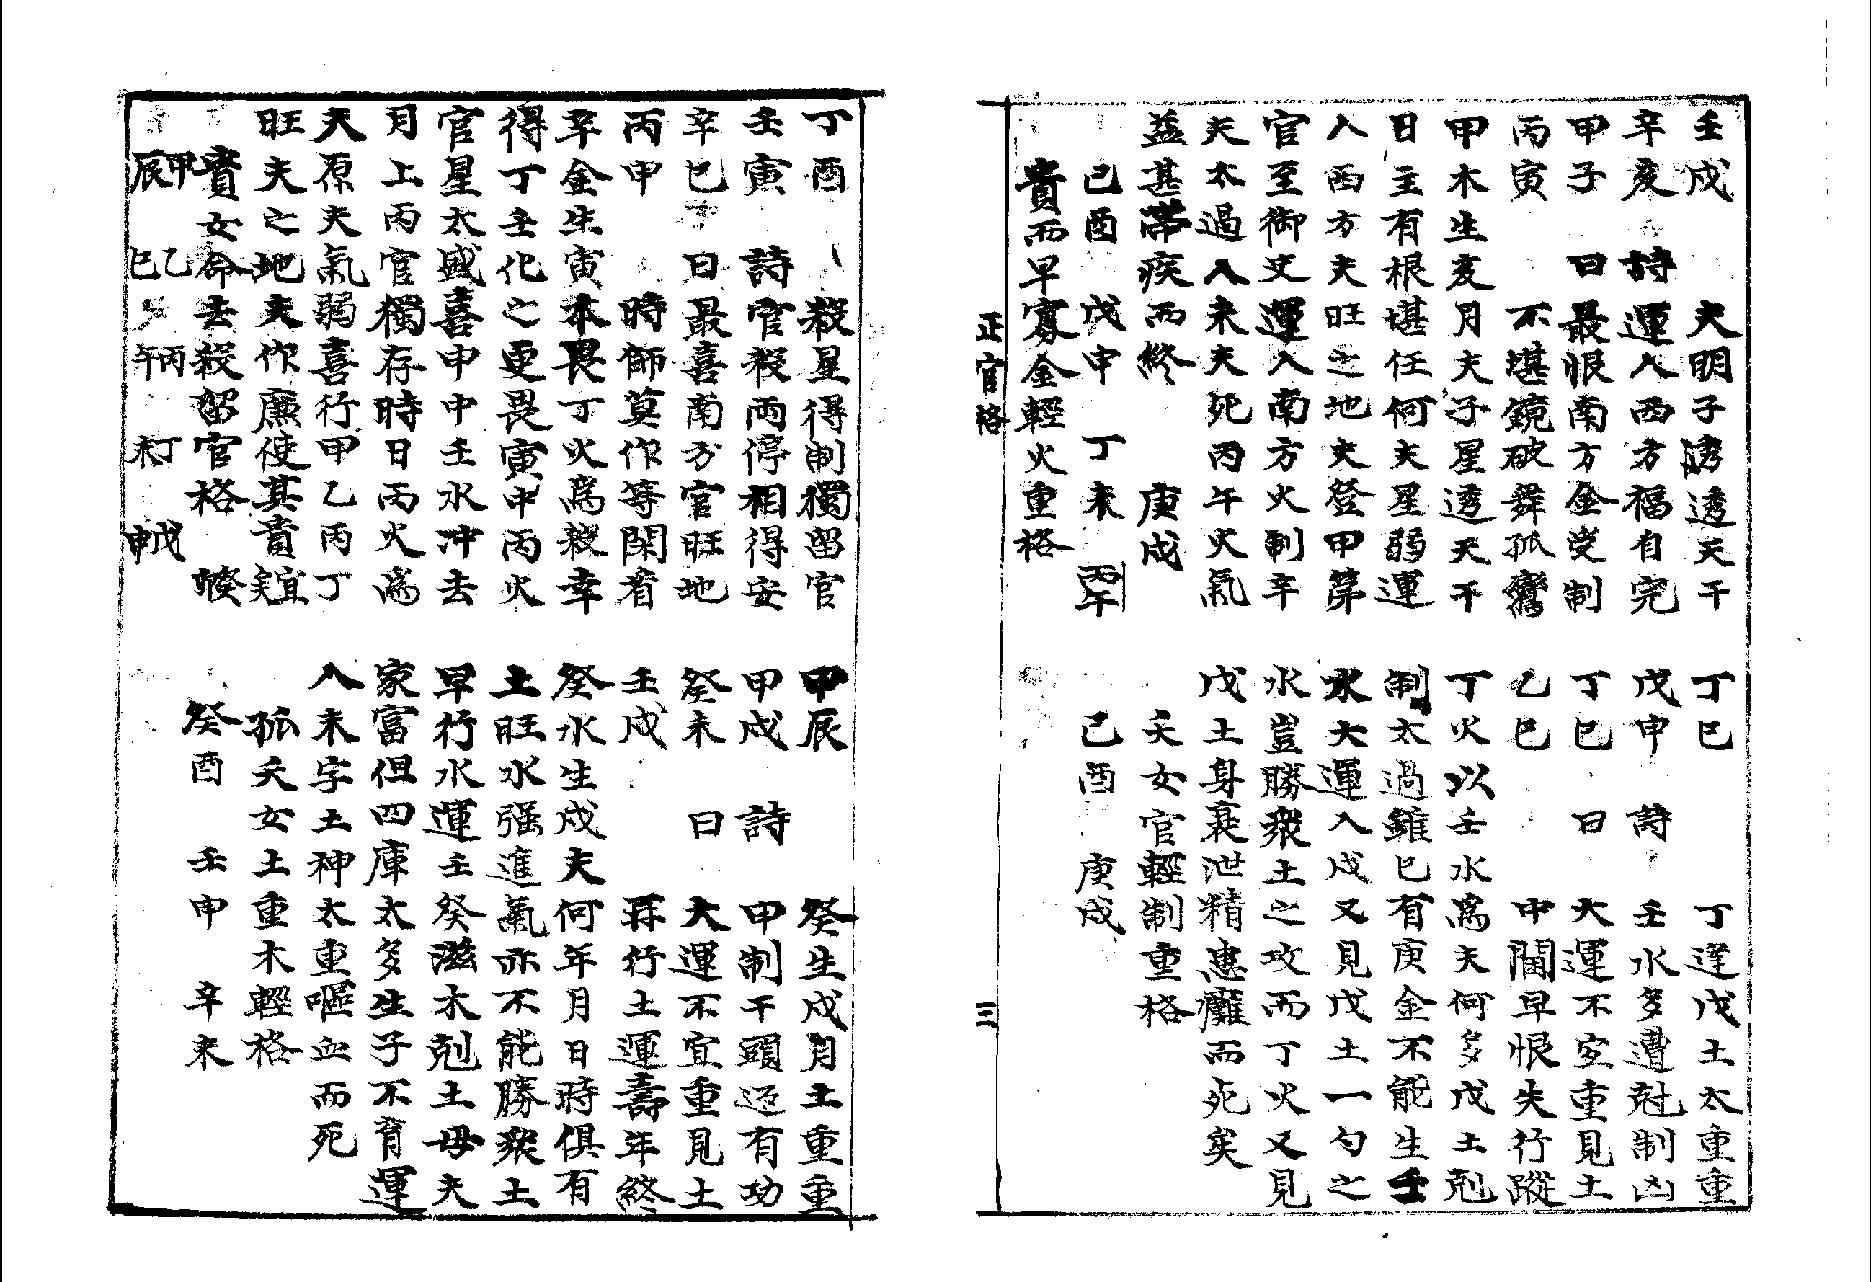 壬戌　夫明子透透天干
辛亥　詩運入西方福自完
甲子　曰最恨南方金受制
丙寅　不堪鏡破舞孤鸞
甲木生亥月夫子星透天干
日主有根堪任何夫星弱運
入西方夫旺之地夫登甲第
官至御史運入南方火制辛
夫太過入未夫死丙午火氣
益甚滯疾而終　庚戌
己酉　戊申　丁未　丙午
貴而早寡金輕火重格
丁巳　丁逢戊土太重重
戊申　詩　壬水多遭尅制凶
丁巳　曰　大運不宜重見土
乙巳　中閫早恨失行蹤
丁火以壬水為夫何多戊土剋
制太過雖巳有庚金不能生壬
水大運入戌又見戊土一勺之
水豈勝衆土之攻而丁火又見
戊土身衰泄精患癱而死矣
夭女官輕制重格
己酉　庚戌
正官格
三
丁酉　殺星得制獨留官
壬寅　詩官殺兩停相得安
辛巳　曰最喜南方官旺地
丙申　時師莫作等閑看
辛金生寅本畏丁火為殺幸
得丁壬化之更畏寅中丙火
官星太盛喜申中壬水冲去
月上丙官獨存時日丙火為
夫原夫氣弱喜行甲乙丙丁
旺夫之地夫作廉使其貴宜
貴女命去殺留官格　癸
甲辰　乙巳　丙午　丁未　戊申
甲辰　癸生戌月土重重
甲戌　詩　甲制干頭迎有功
癸未　曰　大運不宜重見土
壬戌　再行土運壽年終
癸水生戌夫何年月日時俱有
土旺水强進氣亦不能勝衆土
早行水運壬癸滋木剋土母夫
家富但四庫太多生子不育運
入未字土神太重嘔血而死
孤夭女土重木輕格
癸酉　壬申　辛未